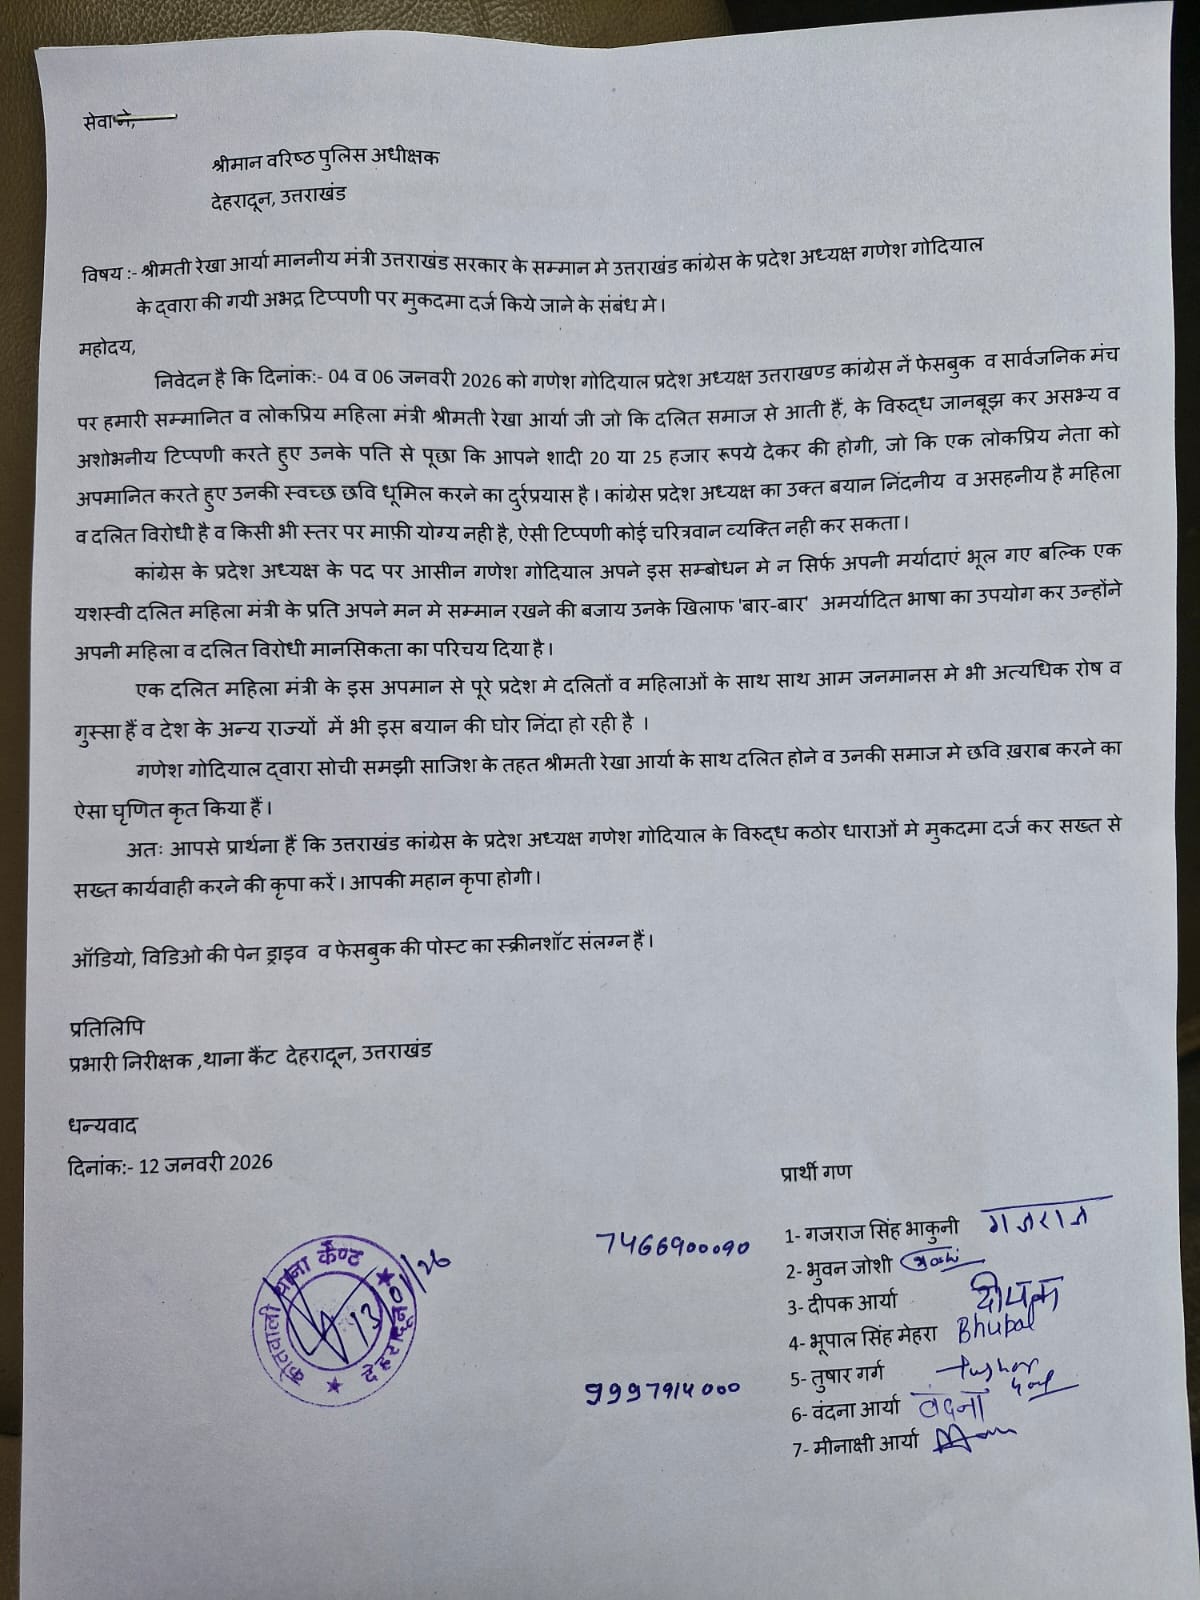 सेवा ने,
श्रीमान वरिष्ठ पुलिस अधीक्षक
देहरादून, उत्तराखंड
विषय :- श्रीमती रेखा आर्या माननीय मंत्री उत्तराखंड सरकार के सम्मान मे उत्तराखंड कांग्रेस के प्रदेश अध्यक्ष गणेश गोदियाल
के द्वारा की गयी अभद्र टिप्पणी पर मुकदमा दर्ज किये जाने के संबंध मे ।
महोदय,
निवेदन है कि दिनांक:- 04 व 06 जनवरी 2026 को गणेश गोदियाल प्रदेश अध्यक्ष उत्तराखण्ड कांग्रेस नें फेसबुक व सार्वजनिक मंच
पर हमारी सम्मानित व लोकप्रिय महिला मंत्री श्रीमती रेखा आर्या जी जो कि दलित समाज से आती हैं, के विरुद्ध जानबूझ कर असभ्य व
अशोभनीय टिप्पणी करते हुए उनके पति से पूछा कि आपने शादी 20 या 25 हजार रूपये देकर की होगी, जो कि एक लोकप्रिय नेता को
अपमानित करते हुए उनकी स्वच्छ छवि धूमिल करने का दुर्रप्रयास है । कांग्रेस प्रदेश अध्यक्ष का उक्त बयान निंदनीय व असहनीय है महिला
व दलित विरोधी है व किसी भी स्तर पर माफ़ी योग्य नही है, ऐसी टिप्पणी कोई चरित्रवान व्यक्ति नही कर सकता ।
कांग्रेस के प्रदेश अध्यक्ष के पद पर आसीन गणेश गोदियाल अपने इस सम्बोधन मे न सिर्फ अपनी मर्यादाएं भूल गए बल्कि एक
यशस्वी दलित महिला मंत्री के प्रति अपने मन मे सम्मान रखने की बजाय उनके खिलाफ 'बार-बार' अमर्यादित भाषा का उपयोग कर उन्होंने
अपनी महिला व दलित विरोधी मानसिकता का परिचय दिया है ।
एक दलित महिला मंत्री के इस अपमान से पूरे प्रदेश मे दलितों व महिलाओं के साथ साथ आम जनमानस मे भी अत्यधिक रोष व
गुस्सा हैं व देश के अन्य राज्यों में भी इस बयान की घोर निंदा हो रही है ।
गणेश गोदियाल द्वारा सोची समझी साजिश के तहत श्रीमती रेखा आर्या के साथ दलित होने व उनकी समाज मे छवि ख़राब करने का
ऐसा घृणित कृत किया हैं ।
अतः आपसे प्रार्थना हैं कि उत्तराखंड कांग्रेस के प्रदेश अध्यक्ष गणेश गोदियाल के विरुद्ध कठोर धाराओं मे मुकदमा दर्ज कर सख्त से
सख्त कार्यवाही करने की कृपा करें । आपकी महान कृपा होगी ।
ऑडियो, विडिओ की पेन ड्राइव व फेसबुक की पोस्ट का स्क्रीनशॉट संलग्न हैं ।
प्रतिलिपि
प्रभारी निरीक्षक ,थाना कैंट देहरादून, उत्तराखंड
धन्यवाद
दिनांक:- 12 जनवरी 2026
प्रार्थी गण
1- गजराज सिंह भाकुनी गजराज
7466900090
2- भुवन जोशी Joshi
3- दीपक आर्या दीपक
4- भूपाल सिंह मेहरा Bhupal
5- तुषार गर्ग Tushar
9997914000
6- वंदना आर्या वंदना
7- मीनाक्षी आर्या
कोतवाली थाना कैण्ट
देहरादून
13/01/26